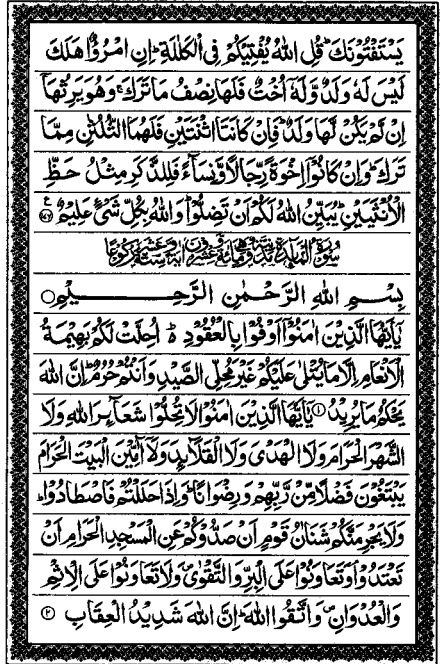 يَسْتَفْتُوْنَكَ ؕ قُلِ اللّٰهُ يُفْتِيْكُمْ فِى الْكَلٰلَةِ ؕ اِنِ امْرُؤٌا هَلَكَ
لَيْسَ لَهٗ وَلَدٌ وَّلَهٗۤ اُخْتٌ فَلَهَا نِصْفُ مَا تَرَكَ ۚ وَهُوَ يَرِثُهَاۤ
اِنْ لَّمْ يَكُنْ لَّهَا وَلَدٌ ؕ فَاِنْ كَانَتَا اثْنَتَيْنِ فَلَهُمَا الثُّلُثٰنِ مِمَّا
تَرَكَ ؕ وَاِنْ كَانُوْۤا اِخْوَةً رِّجَالًا وَّنِسَآءً فَلِلذَّكَرِ مِثْلُ حَظِّ
الْاُنْثَيَيْنِ ؕ يُبَيِّنُ اللّٰهُ لَكُمْ اَنْ تَضِلُّوْا ؕ وَاللّٰهُ بِكُلِّ شَىْءٍ عَلِيْمٌ ۧ ﴿۱۷۶﴾
سُوْرَةُ الْمَآئِدَةِ مَدَنِيَّةٌ وَّهِىَ مِائَةٌ وَّعِشْرُوْنَ اٰيَةً وَّسِتَّةَ عَشَرَ رُكُوْعًا
بِسْمِ اللّٰهِ الرَّحْمٰنِ الرَّحِيْمِ ۝
يٰۤاَيُّهَا الَّذِيْنَ اٰمَنُوْۤا اَوْفُوْا بِالْعُقُوْدِ ؕ اُحِلَّتْ لَكُمْ بَهِيْمَةُ
الْاَنْعَامِ اِلَّا مَا يُتْلٰى عَلَيْكُمْ غَيْرَ مُحِلِّى الصَّيْدِ وَاَنْتُمْ حُرُمٌ ؕ اِنَّ اللّٰهَ
يَحْكُمُ مَا يُرِيْدُ ﴿۱﴾ يٰۤاَيُّهَا الَّذِيْنَ اٰمَنُوْا لَا تُحِلُّوْا شَعَآئِرَ اللّٰهِ وَلَا
الشَّهْرَ الْحَرَامَ وَلَا الْهَدْىَ وَلَا الْقَلَآئِدَ وَلَاۤ آٰمِّيْنَ الْبَيْتَ الْحَرَامَ
يَبْتَغُوْنَ فَضْلًا مِّنْ رَّبِّهِمْ وَرِضْوَانًا ؕ وَاِذَا حَلَلْتُمْ فَاصْطَادُوْا ؕ
وَلَا يَجْرِمَنَّكُمْ شَنَاٰنُ قَوْمٍ اَنْ صَدُّوْكُمْ عَنِ الْمَسْجِدِ الْحَرَامِ اَنْ
تَعْتَدُوْا ۘ وَتَعَاوَنُوْا عَلَى الْبِرِّ وَالتَّقْوٰى ۪ وَلَا تَعَاوَنُوْا عَلَى الْاِثْمِ
وَالْعُدْوَانِ ۪ وَاتَّقُوا اللّٰهَ ؕ اِنَّ اللّٰهَ شَدِيْدُ الْعِقَابِ ﴿۲﴾